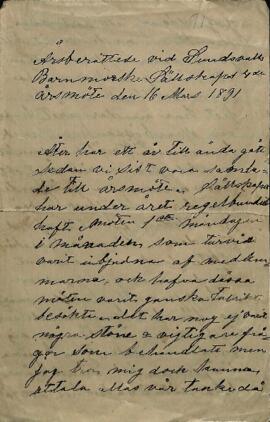 Årsberättelse vid Sundsvalls
Barnmorske Sällskapet 4de
årsmöte den 16 Mars 1891
Åter har ett år till ända gått
sedan vi sist voro samla-
de till årsmöte. Sällskapet
har under året regelbundet
haft Möten 1sta måndagen
i månaden, som turvis
varit inbjudna af medlem-
marna, och hafva dessa
möten varit ganska talrikt
besökte, det har nog ej varit
några större & vigtigare frå-
gor som behandlats men
jag tror mig dock kunna
uttala allas vår tanke då